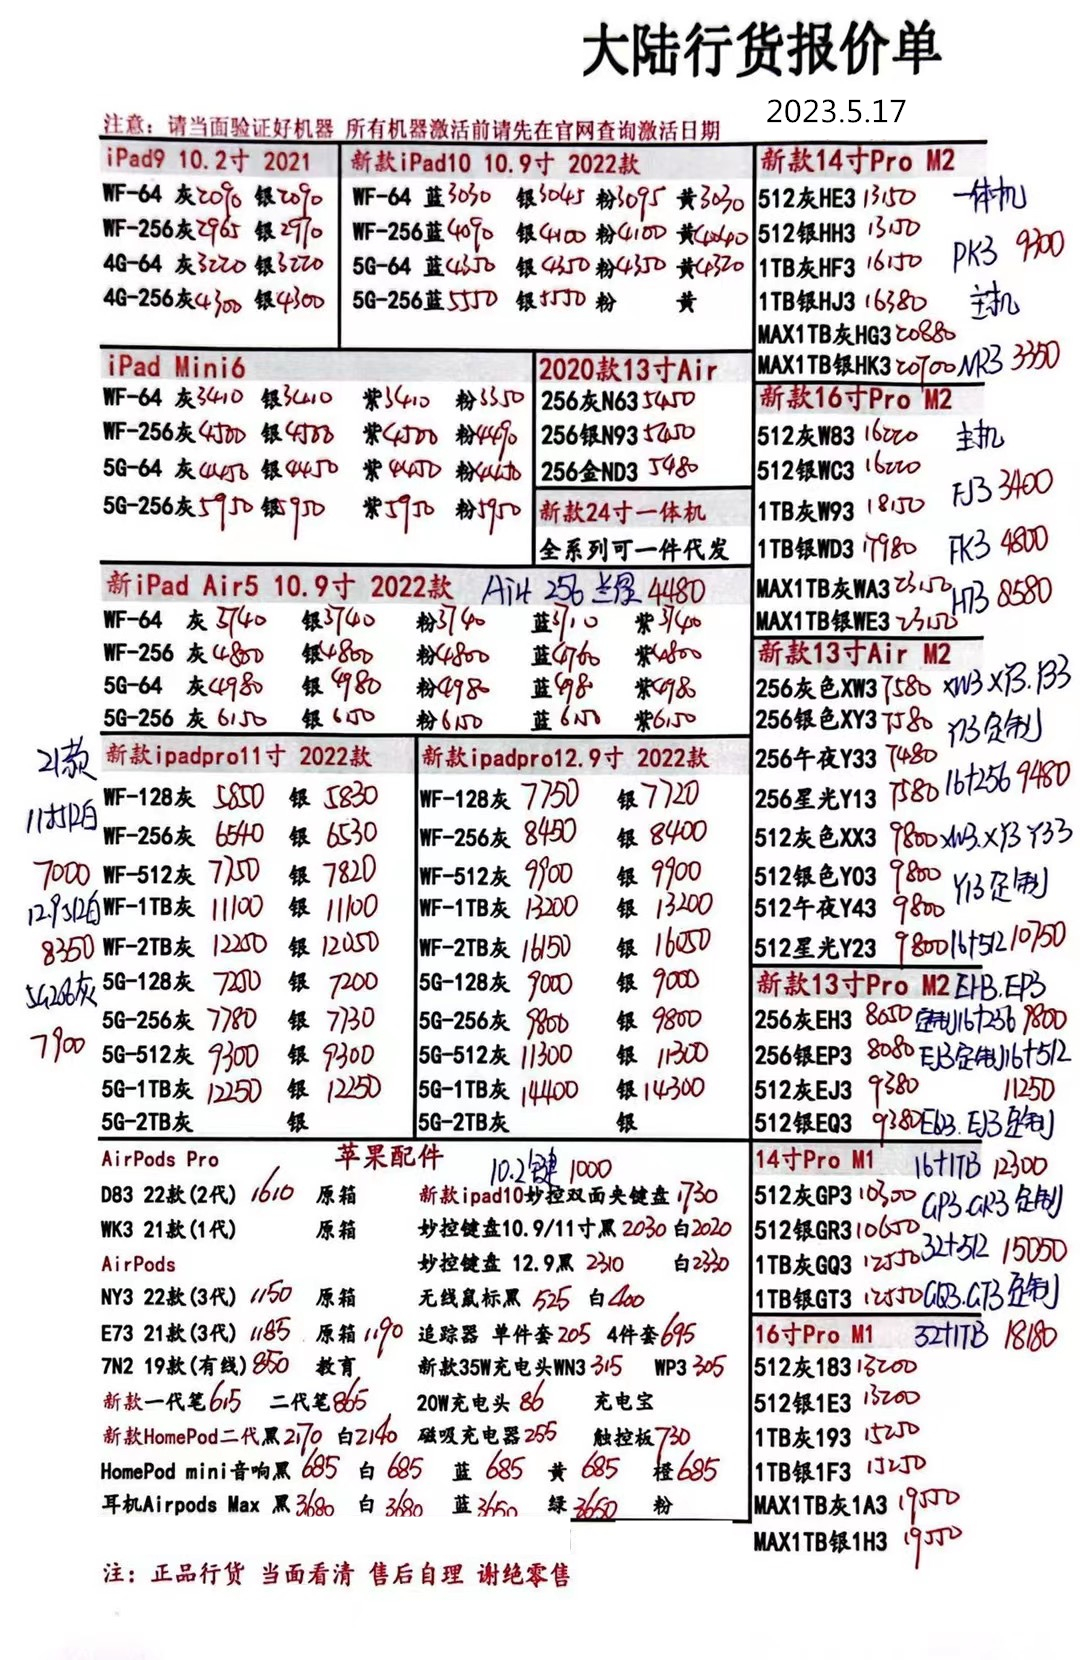 大陆行货报价单
2023.5.17
注意：请当面验证好机器 所有机器激活前请先在官网查询激活日期
iPad9 10.2寸 2021
WF-64 灰2090 银2090
WF-256灰2965 银2970
4G-64 灰3220 银3220
4G-256灰4300 银4300
新款iPad10 10.9寸 2022款
WF-64 蓝3030 银3045 粉3095 黄3030
WF-256蓝4090 银4100 粉4100 黄4040
5G-64 蓝4350 银4350 粉4350 黄4320
5G-256蓝5550 银5550 粉 黄
iPad Mini6
WF-64 灰3410 银3410 紫3410 粉3350
WF-256灰4500 银4500 紫4500 粉4490
5G-64 灰4450 银4450 紫4450 粉4450
5G-256灰5950 银5950 紫5950 粉5950
2020款13寸Air
256灰N63 5450
256银N93 5450
256金ND3 5480
新款24寸一体机
全系列可一件代发
新iPad Air5 10.9寸 2022款 Air4 256 兰绿 4480
WF-64 灰 3740 银3740 粉3740 蓝3710 紫3740
WF-256 灰4800 银4800 粉4800 蓝4760 紫4800
5G-64 灰4980 银 4980 粉4980 蓝498 紫4980
5G-256 灰6150 银 6150 粉6150 蓝 6150 紫6150
21款
11寸512白
7000
12.9 512白
8350
5G256灰
7900
新款ipadpro11寸 2022款
WF-128灰 5850 银 5830
WF-256灰 6540 银 6530
WF-512灰 7750 银 7820
WF-1TB灰 11100 银 11100
WF-2TB灰 12250 银 12050
5G-128灰 7250 银 7200
5G-256灰 7780 银 7730
5G-512灰 9300 银 9300
5G-1TB灰 12250 银 12250
5G-2TB灰 银
新款ipadpro12.9寸 2022款
WF-128灰 7750 银7720
WF-256灰 8450 银 8400
WF-512灰 9900 银 9900
WF-1TB灰 13200 银 13200
WF-2TB灰 16150 银 16050
5G-128灰 9000 银 9000
5G-256灰 9800 银 9800
5G-512灰 11300 银 11300
5G-1TB灰 14400 银 14300
5G-2TB灰 银
苹果配件
AirPods Pro
D83 22款(2代) 1610 原箱
WK3 21款(1代) 原箱
AirPods
NY3 22款(3代) 1150 原箱
E73 21款(3代) 1185 原箱1190
7N2 19款(有线) 850 教育
新款一代笔615 二代笔865
新款HomePod二代黑2170 白2140
HomePod mini音响黑 685 白 685 蓝 685 黄 685 橙685
耳机Airpods Max 黑3680 白 3680 蓝3650 绿3650 粉
10.2键 1000
新款ipad10妙控双面夹键盘1730
妙控键盘10.9/11寸黑 2030 白2020
妙控键盘 12.9黑 2310 白2330
无线鼠标黑 525 白400
追踪器 单件套205 4件套695
新款35W充电头WN3 315 WP3 305
20W充电头 86 充电宝
磁吸充电器255 触控板730
新款14寸Pro M2
512灰HE3 13150
512银HH3 13150
1TB灰HF3 16150
1TB银HJ3 16380
MAX1TB灰HG3 20880
MAX1TB银HK3 20700
一体机
PK3 9300
主机
MR3 3350
新款16寸Pro M2
512灰W83 16220
512银WC3 16220
1TB灰W93 18150
1TB银WD3 17980
MAX1TB灰WA3 23150
MAX1TB银WE3 23150
主机
FJ3 3400
FK3 4800
HT3 8580
新款13寸Air M2
256灰色XW3 7580 XW3.XY3.Y33
256银色XY3 7580 Y13定制
256午夜Y33 7480
256星光Y13 7580 16+256 9480
512灰色XX3 9800 XW3.XY3 Y33
512银色Y03 9800 Y13定制
512午夜Y43 9800
512星光Y23 9800 16+512 10750
新款13寸Pro M2 EH3.EP3
256灰EH3 8050 定制16+256 9800
256银EP3 8080 EJ3定制16+512
512灰EJ3 9380 11250
512银EQ3 9380 EQ3.EJ3定制
14寸Pro M1 16+1TB 12300
512灰GP3 10500 GP3.GR3定制
512银GR3 10650 32+512 15050
1TB灰GQ3 12550
1TB银GT3 12550 GQ3.GT3定制
16寸Pro M1 32+1TB 18180
512灰183 13200
512银1E3 13200
1TB灰193 15250
1TB银1F3 15250
MAX1TB灰1A3 19550
MAX1TB银1H3 19550
注：正品行货 当面看清 售后自理 谢绝零售